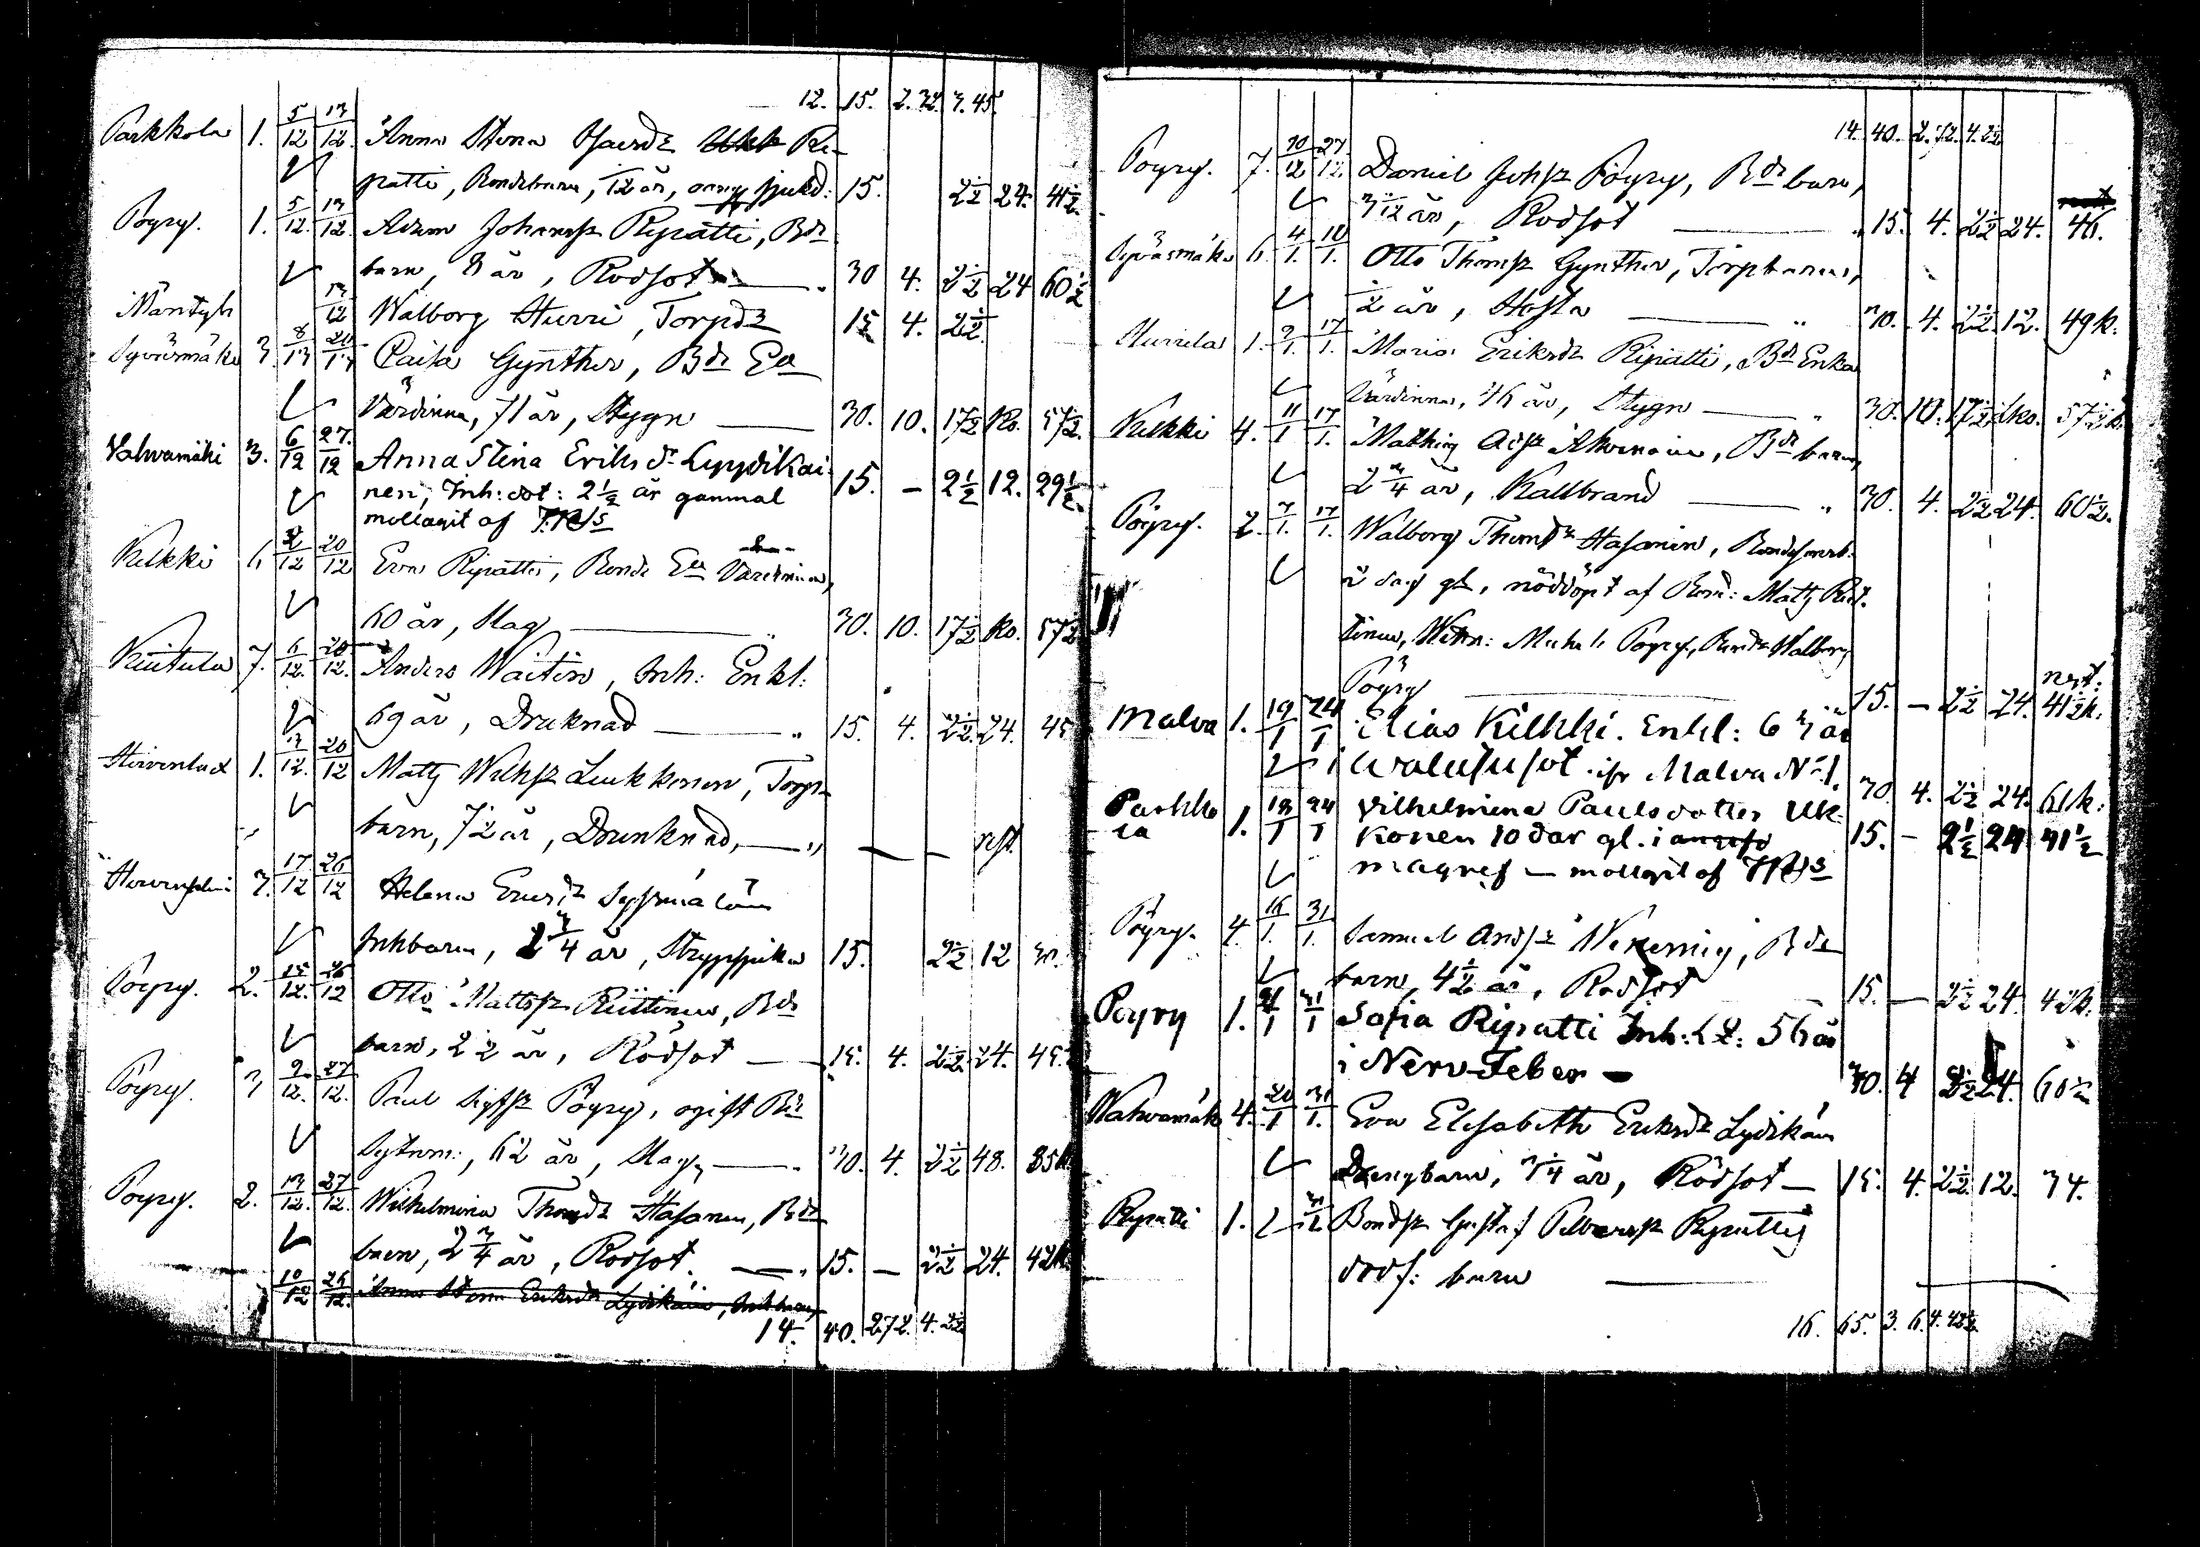 12. 15. 2.32. 3.45.
Parkkola 1. 5/12 13/12 Anna Stena Isacsdr Ri-
patti, Bondebarn, 1/12 år, 15. 2½ 24. 41½.
Pöyry. 1. 5/12. 13/12. Adam Johanss Ripatti, Bds
barn, 8 år, Rödsot 30 4. 2½ 24 60½
Mäntyh 13/12 Walborg Hurri, Torpdr 15 4. 2½
Syväsmäki 3. Caisa Gynther, Bds Ea
Värdinna, 71 år, Stygn 30. 10. 17½ Ko. 57½.
Vahvamäki 3. 6/12 27/12 Anna Stina Eriks dr Lyydikäi-
nen, Inh: dot: 2½ år gammal 15. — 2½ 12. 29½.
mottagit af
Kilkki 6 20/12 Eva Ripatti, Bonde Ea Värdinna,
60 år, Slag 30. 10. 17½ Ko. 57½
Kiitula 7. 6/12. 20/12. Anders Waitin, Inh: Enkl:
69 år, Druknad 15. 4. 2½ 24. 45
1. 20/12 Matts Wilhss Luukkonen, Torp-
barn, 7½ år, Drunknad, — — rest.
3. 17/12 26/12 Helena Ericsdr
Inhbarn, 2¾ år, Strypsjuka 15. 2½ 12
Pöyry. 2. 15/12. 26/12 Otto Mattss Riittinen, Bds
barn, 2½ år, Rödsot 15. 4. 2½ 24. 45.
Pöyry. 3 9/12. 27/12. Paul Sigfss Pöyry, ogift Bds
Sytnm:, 62 år, Slag, 30. 4. 2½ 48. 85k.
Pöyry. 2. 13/12. 27/12. Wilhelmina Thomsdr Hasanen, Bds
barn, 2¾ år, Rödsot. 15. — 2½ 24. 42k.
10/12 26/12. Anna Stina Eriksdr Lydikäin, Inhbarn
14. 40. 2.72. 4.2½
14. 40. 2.72. 4.2½
Pöyry. 7. 30/12 27/12. Daniel Johss Pöyry, Bds barn,
3 1/12 år, Rödsot 15. 4. 2½ 24. 46.
Syväsmäki 6. 4/1. 10/1. Otto Thomss Gynther, Torpbarn,
½ år, Hosta 30. 4. 2½ 12. 49k.
Hurrila 1. 9/1. 17/1. Maria Eriksdr Ripatti, Bds Enka
Värdinna, 46 år, Stygn 30. 10. 17½ Ko. 57½k.
Kilkki 4. 11/1 17/1. Mathias Adss Ahvenain, Bds barn,
2¾ år, Kallbrand 30. 4. 2½ 24. 60½.
Pöyry. 2. 7/1. 17/1. Walborg Thomsdr Hasanen,
2 dag gl, nöddöpt af Bond: Matts Riit-
tinen, Wittn: Michel Pöyry, Walborg
Pöyry rest.
15. — 2½ 24. 41½k.
Malva 1. 19/1 24/1 Elias Kilkki. Enkl: 63 år
i Malva No 1. 30. 4. 2½ 24. 61k.
Parkko
la 1. 19/1 24/1 Vilhelmina Paulsdotter Uk-
konen 10 dar gl. i 15. — 2½ 24 41½
magref — mottagit af
Pöyry. 4. 16/1. 31/1. Samuel Andss
barn, 4½ år, Rödsot 15. — 2½ 24. 42k.
Pöyry 1. 21/1 31/1 Sofia Ripatti Inh: 56 år
i Nerv Feber — 30. 4 2½ 24. 60½
Wahvamäki 4. 20/1 31/1. Eva Elisabeth Eriksdr Lydikäin
Drengbarn, 3¼ år, Rödsot — 15. 4. 2½ 12. 34.
Ripatti 1. Bondss Gustaf Ripattis
dödf: barn
16. 65. 3. 6. 4. 42½.